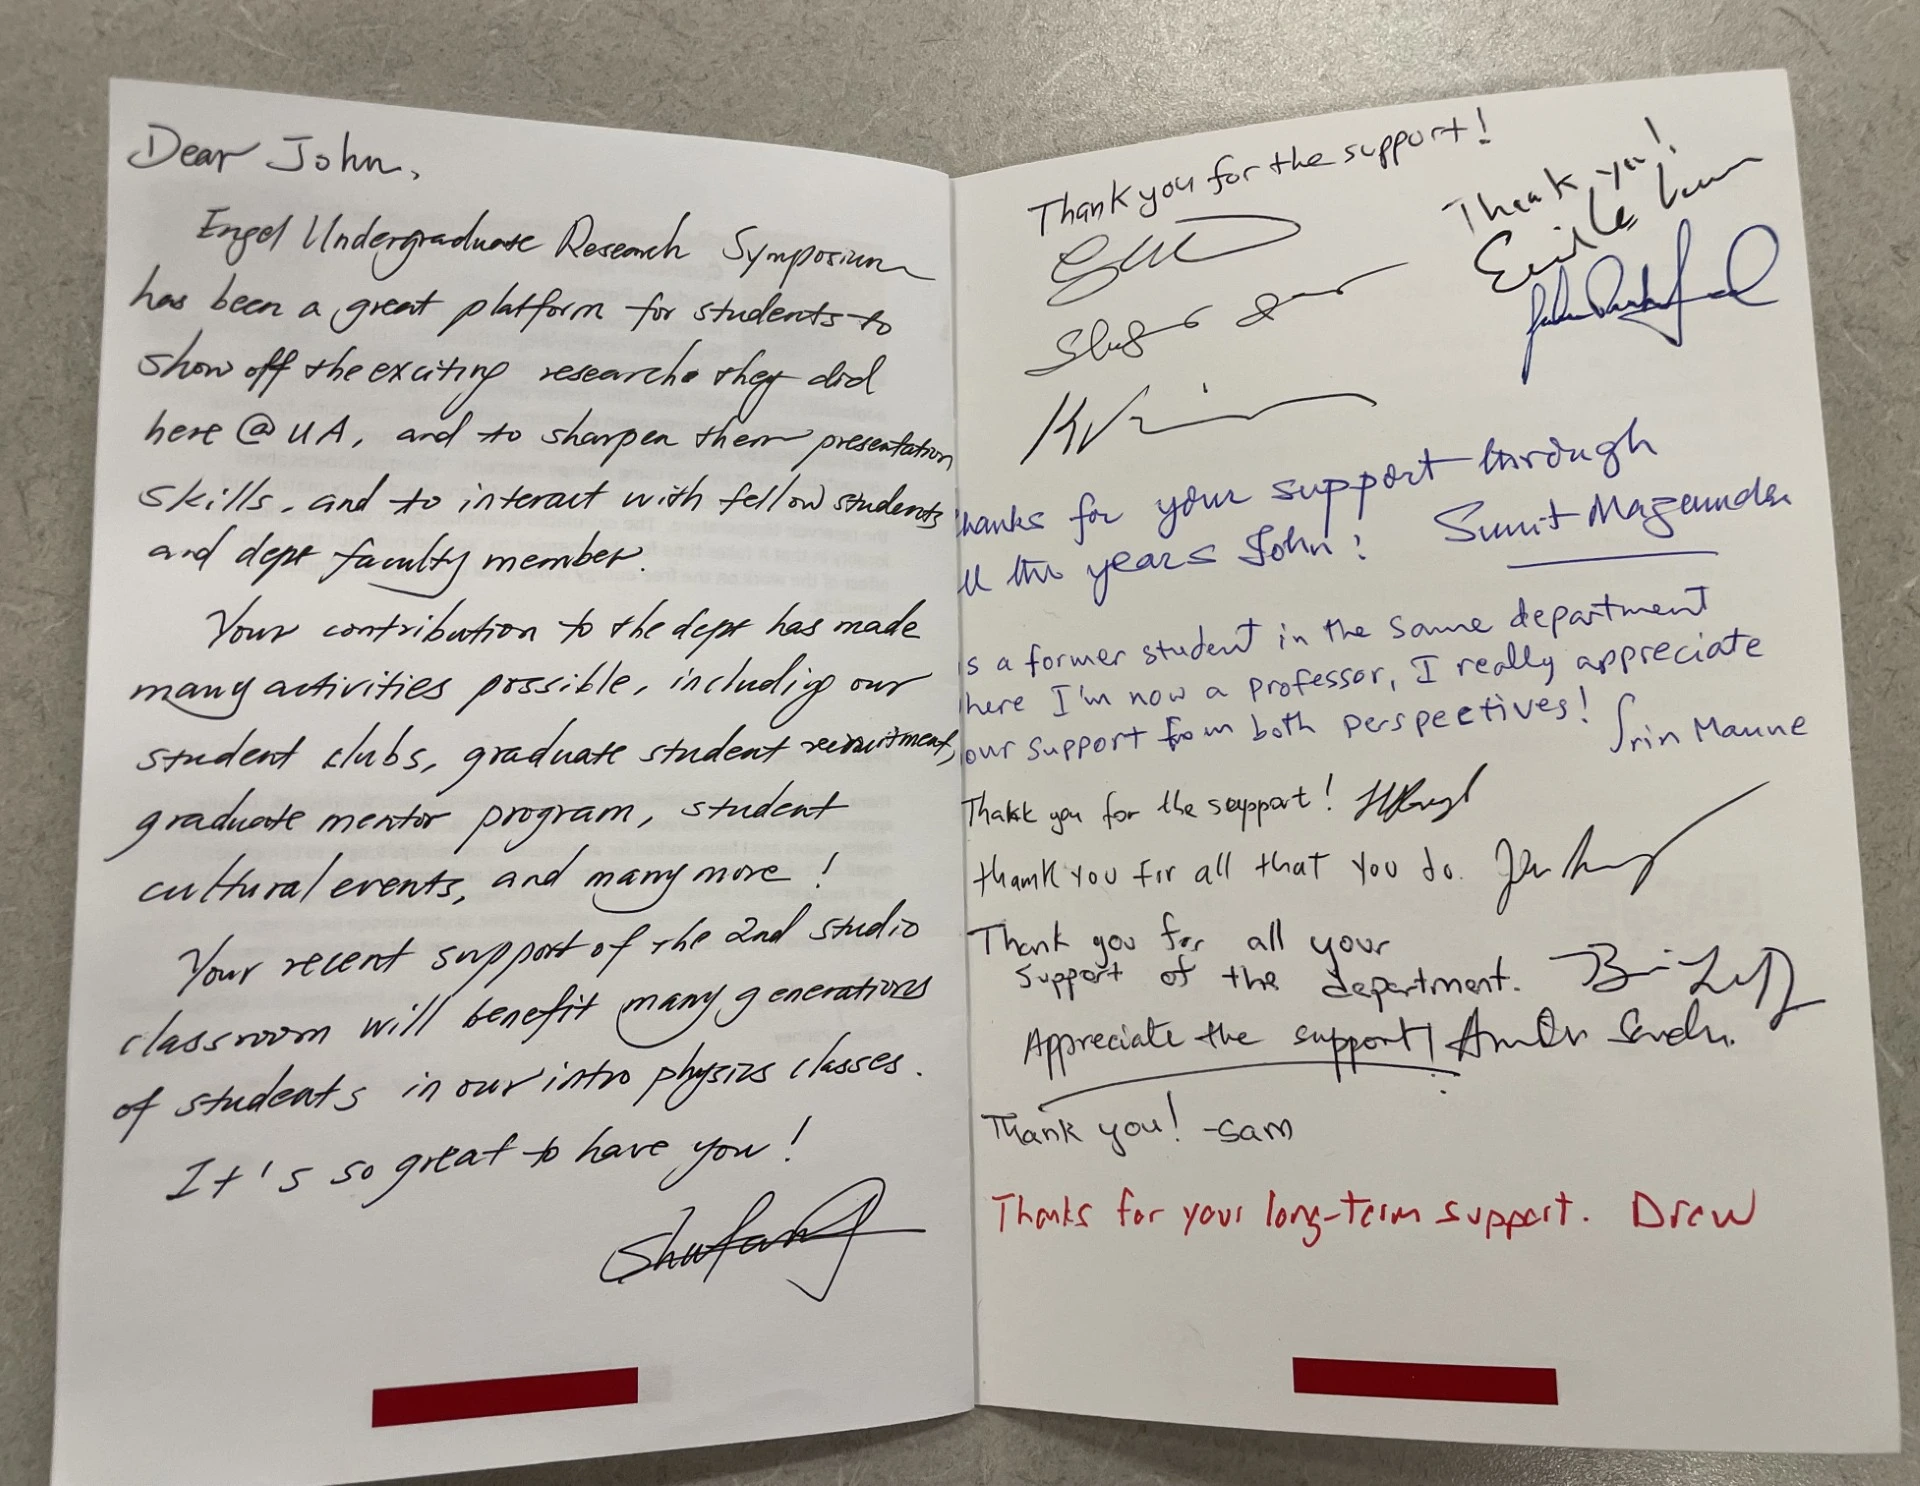 Dear John,
Engel Undergraduate Research Symposium
has been a great platform for students to
show off the exciting research they did
here @ UA, and to sharpen them presentation
skills, and to interact with fellow students
and dept faculty member.
Your contribution to the dept has made
many activities possible, including our
student clubs, graduate student recruitment,
graduate mentor program, student
cultural events, and many more!
Your recent support of the 2nd studio
classroom will benefit many generations
of students in our intro physics classes.
It's so great to have you!
Shufang
Thank you for the support!
Thank you!
hanks for your support through
ll the years John! Sumit Mazumdar
s a former student in the same department
here I'm now a professor, I really appreciate
our support from both perspectives! Srin Manne
Thank you for the support!
thank you for all that you do.
Thank you for all your
support of the department.
Appreciate the support!
Thank you! -Sam
Thanks for your long-term support. Drew